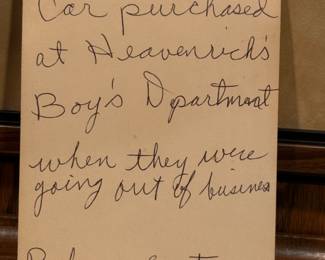 Car purchased
at Heavenrich's
Boy's Dpartment
when they were
going out of business